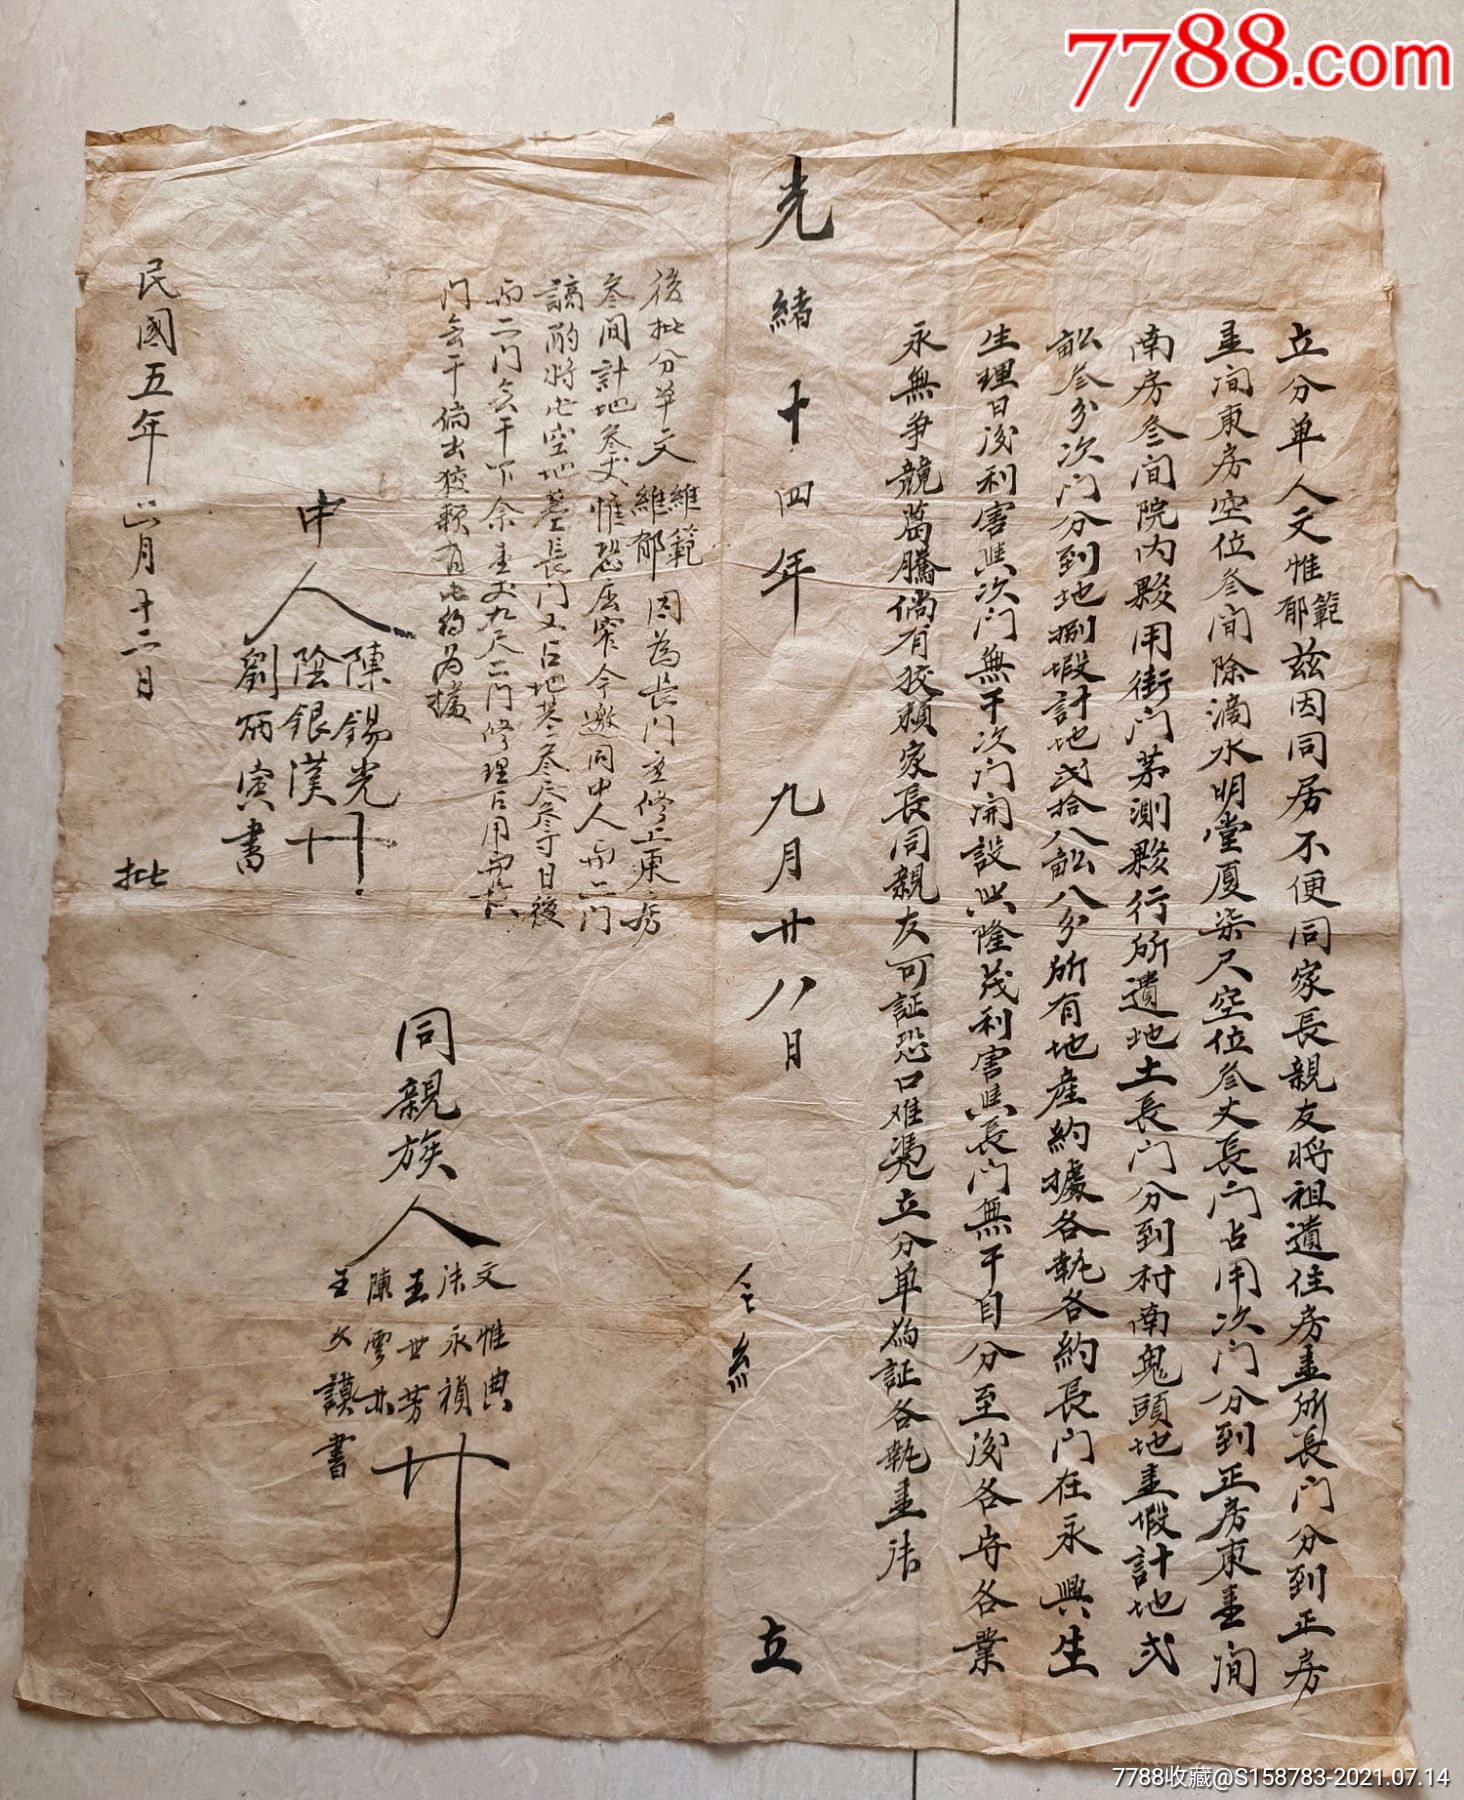 7788.com
立分单人文惟範郁兹因同居不便同家長親友將祖遺住房壹所長门分到正房
壹间東房空位叁间除滴水明堂厦柒尺空位叁丈長门占用次门分到正房東壹间
南房叁间院内夥用街门茅測夥行所遺地土長门分到村南鬼頭地壹段計地弍
畝叁分次门分到地捌塅計地弍拾八畝八分所有地産約據各執各約長门在永興生
生理日後利害與次门無干次门開設興隆茂利害與長门無干自分至後各守各業
永無争競葛騰倘有狡頼家長同親友可証恐口难凴立分单為証各執壹
光緒十四年九月廿八日 立
後批分单文維範維郁因為長门重修上東房
叁间計地叁丈惟恐房窄今邀同中人两二门
酌將此空地長门又占地基叁尺叁寸日後
与二门無干下余壹丈九尺二门修理占用与長
门無干倘出狡頼有此約為據
中人
陳錫光
陰銀漢
劉丙寅書
十
民國五年六月十二日 批
同親族人
文惟典
永禎
王世芳
陳雲
王文謨書
十
7788收藏@S158783-2021.07.14